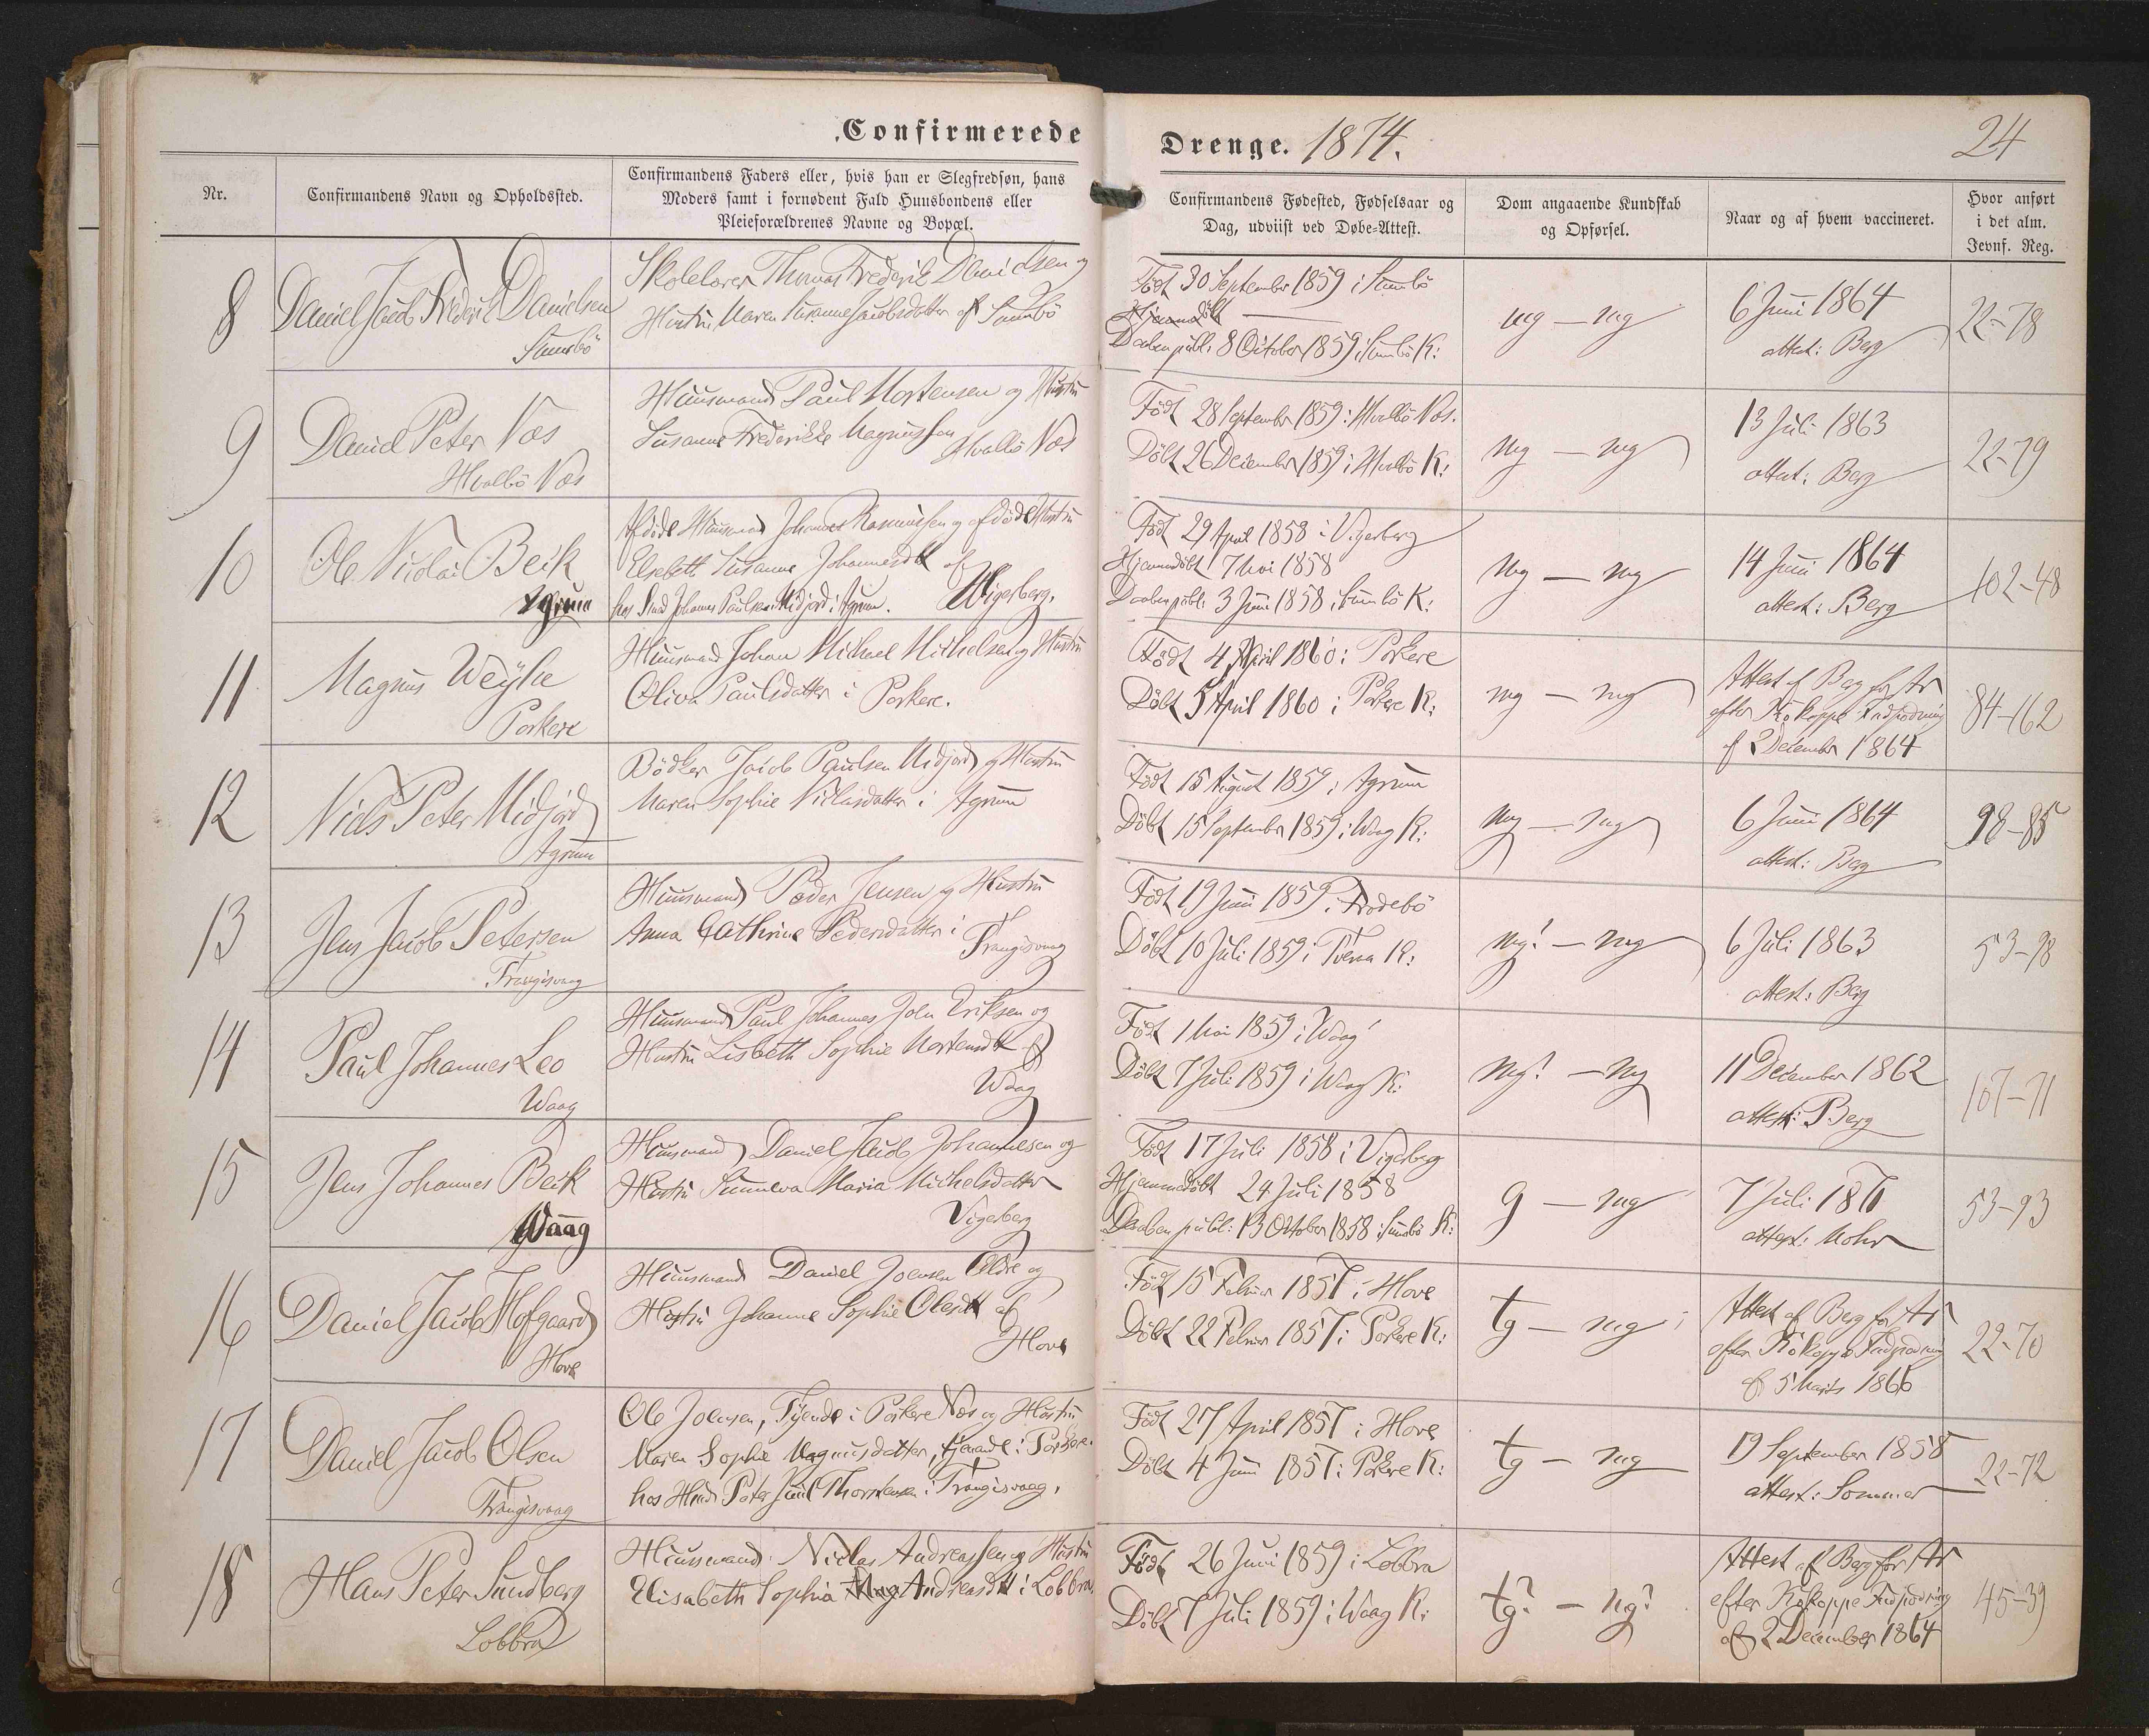 Confirmerede
Drenge. 1874.
24
Nr.
Confirmandens Navn og Opholdssted.
Confirmandens Faders eller, hvis han er Slegfredsøn, hans
Moders samt i fornødent Fald Huusbondens eller
Pleieforældrenes Navne og Bopæl.
Confirmandens Fødested, Fødselsaar og
Dag, udviist ved Døbe-Attest.
Dom angaaende Kundskab
og Opførsel.
Naar og af hvem vaccineret.
Hvor anført
i det alm.
Jevnf. Reg.
8
Daniel Jacob Frederik Danielsen
Sumbö
Skolelærer Thomas Frederik Davidsen og
Hustru Maren Susanne Jacobsdatter af Sumbö
Födt 30 September 1859 i Sumbö
Hjemmedöbt
Daaben publ: 8 October 1859 i Sumbö K:
mg – mg
6 Juni 1864
attest: Berg
22-78
9
Daniel Peter Næs
Hvalbö Næs
Huusmand Paul Mortensen og Hustru
Susanne Frederikke Magnussen
Hvalbö Næs
Födt 28 September 1859 i Hvalbö Næs.
Döbt 26 December 1859 i Hvalbö K:
mg – mg
13 Juli 1863
attest: Berg
22-79
10
Ole Nicolai Beck
Agrum
Afdöde Huusmand Johannes Rasmussen og afdöde Hustru
Elsebeth Susanne Johannesdtt af
hos Hmd Johannes Paulsen Midjord i Agrum. Wigerberg.
Födt 29 April 1858 i Vigerberg
Hjemmedöbt 7 Mai 1858
Daaben publ: 3 Juni 1858 i Sumbö K:
mg – mg
14 Juni 1864
attest: Berg
102-48
11
Magnus Weyhe
Porkere
Huusmand Johan Michael Michelsen og Hustru
Oliva Paulsdatter i Porkere.
Födt 4 April 1860 i Porkere
Döbt 5 April 1860 i Porkere K:
mg – mg
Attest af Berg for Ar
efter Kokoppe Indpodning
af 2 December 1864
84-162
12
Niels Peter Midjord
Agrum
Bödker Jacob Paulsen Midjord og Hustru
Maren Sophie Niclasdatter i Agrum
Födt 15 August 1859 i Agrum
Döbt 15 September 1859 i Waag K:
mg – mg
6 Juni 1864
attest: Berg
98-85
13
Jens Jacob Petersen
Trangisvaag
Huusmand Peder Jensen og Hustru
Anna Cathrine Pedersdatter i
Trangisvaag
Födt 19 Juni 1859 i Frodebö
Döbt 10 Juli 1859 i Tveraa K:
mg? – mg
6 Juli 1863
attest: Berg
53-98
14
Paul Johannes Leo
Waag
Huusmand Paul Johannes John Eriksen og
Hustru Lisbeth Sophie Mortensdtt af
Waag
Födt 1 Mai 1859 i Waag
Döbt 7 Juli 1859 i Waag K:
mg? – mg
11 December 1862
attest: Berg
107-71
15
Jens Johannes Beck
Waag
Huusmand Daniel Jacob Johannesen og
Hustru Sunneva Maria Michelsdatter
Vigerberg
Födt 17 Juli 1858 i Vigerberg
Hjemmedöbt 24 Juli 1858
Daaben publ: 13 October 1858 i Sumbö K:
g – mg
7 Juli 1871
attest: Mohr
53-93
16
Daniel Jacob Hofgaard
Hove
Huusmand Daniel Joensen Ældre og
Hustru Johanne Sophie Olesdtt af
Hove
Födt 15 Februar 1857 i Hove
Döbt 22 Februar 1857 i Porkere K:
tg – mg
Attest af Berg for Ar
efter Kokoppe Indpodning
af 5 Marts 1866
22-70
17
Daniel Jacob Olsen
Trangisvaag
Ole Joensen, Tyende i Porkere Næs og Hustru
Maren Sophie Magnusdatter, tjenende i Porkere.
hos Hmd Peter Juul Thomsen i Trangisvaag.
Födt 27 April 1857 i Hove
Döbt 4 Juni 1857 i Porkere K:
tg – mg
19 September 1858
attest: Sommer
22-72
18
Hans Peter Sundberg
Lobbra
Huusmand Niclas Andreassen og Hustru
Elisabeth Sophia Andreasdtt i Lobbra.
Födt 26 Juni 1859 i Lobbra
Döbt 7 Juli 1859 i Waag K:
tg? – mg?
Attest af Berg for Ar
efter Kokoppe Indpodning
af 2 December 1864
45-39